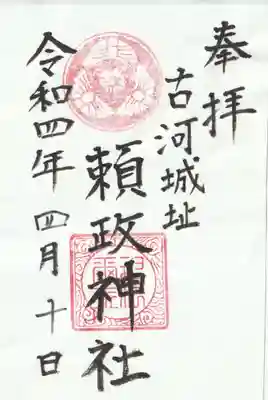 奉拝
古河城址
頼政神社
令和四年 四月十日